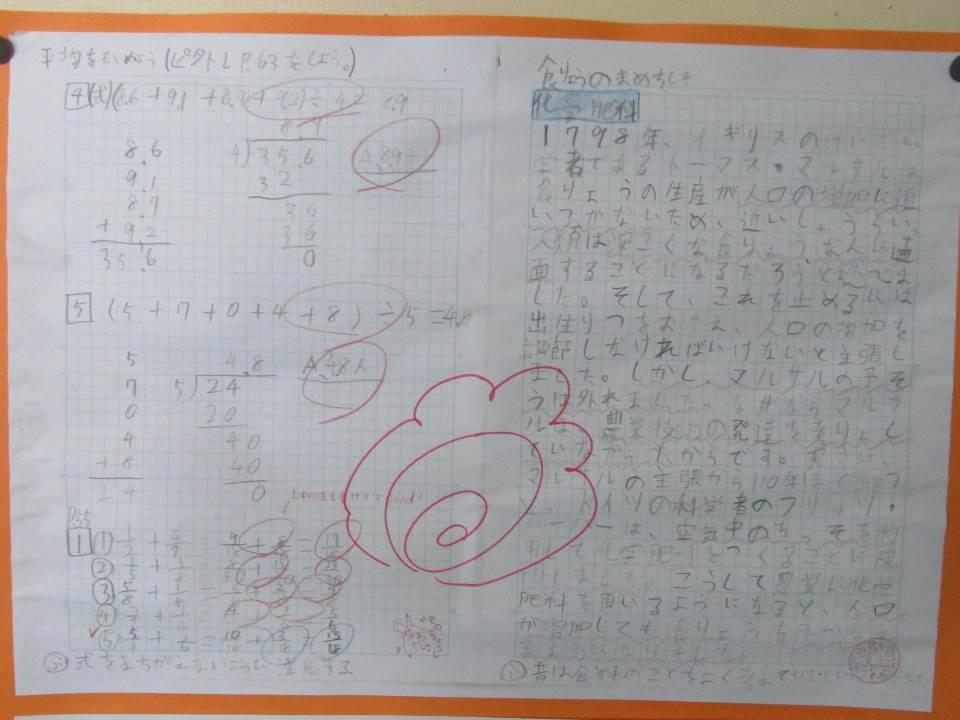 平均をもとめよう(ピタトレP.63をしよう。)
4 (式)(8.6+9.1+8.7+9.2)÷4=8.9
8.9
8.6 4)35.6 A 8.9
9.1 32
8.7 36
+9.2 36
35.6 0
5 (5+7+0+4+8)÷5=4.8
5 4.8 A 4.8人
7 5)24
0 20
4 40
+8 40
24 0
P.55
1 ① 1/2+4/9 9/18+8/18=17/18
②
③ 5/8+1/4=
④
⑤
式をまちがえないように注意する
食りょうのまめちしき
化学肥料
1798年、イギリスの
学者であるトーマス・マルサスは
食りょうの生産が人口の増加に追
いつかないため、近いしょうらい、
人類は深こくな食りょうなんに直
面することになるだろうと
した。そして、これを止めるには
出生りつをおさえ、人口の増加を
調節しなければいけないと主張し
ました。しかし、マルサスの予そ
うは外れました。なぜならマルサ
スは、農業技術の発達を考りょし
ていなかったからです。
の主張から110年ほど
ドイツの科学者のフリッツ・
ハーバーは、空気中のちっそを利
用して化学肥料をつくることに成
功しました。こうして農業に化学
肥料を用いるようになると、人口
が増加しても食りょう
ようになりました。
昔は食料のことをよく考えて